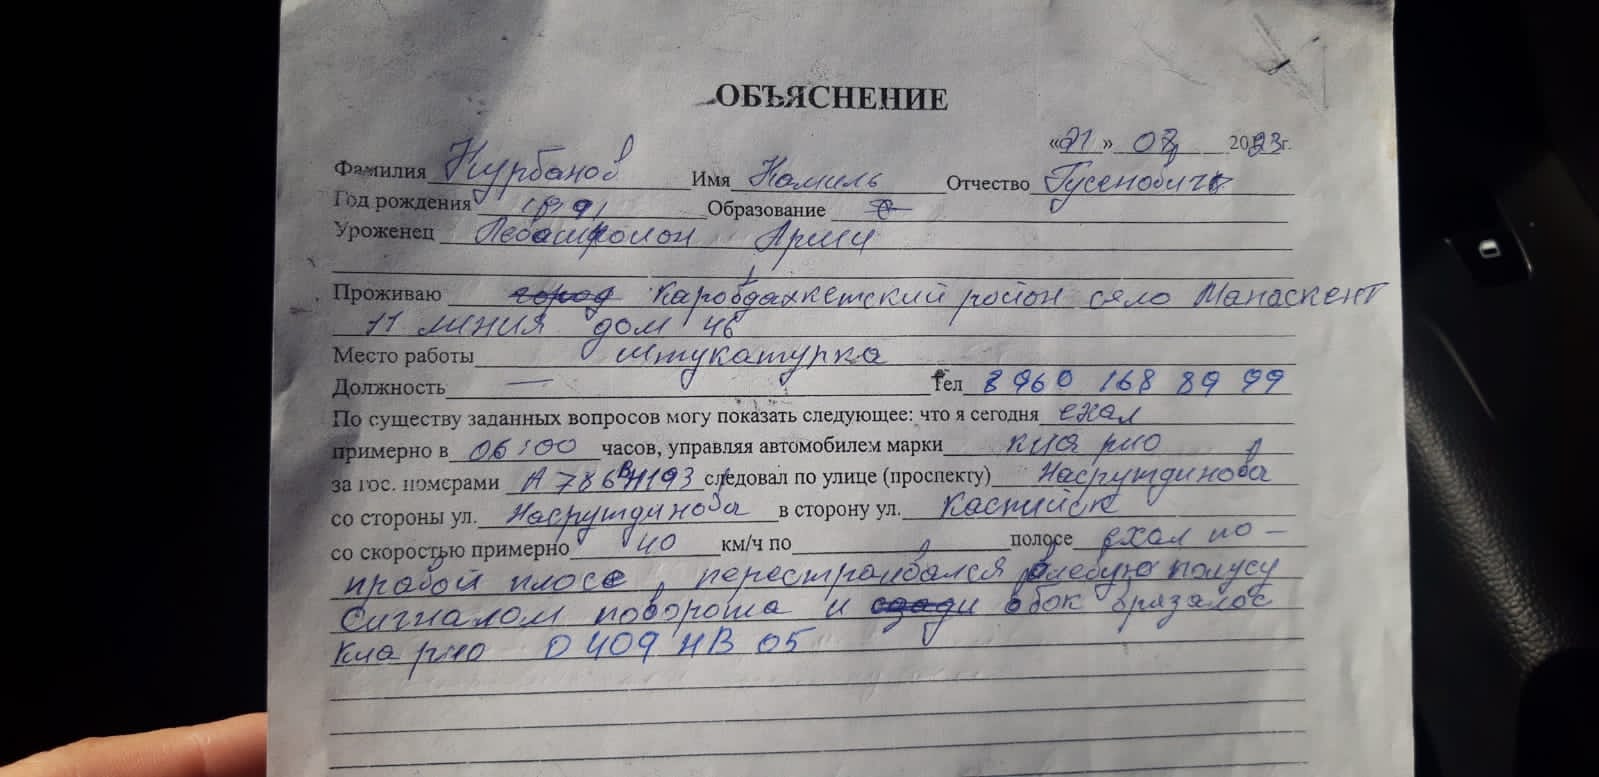 ОБЪЯСНЕНИЕ
«21» 08 2023г.
Фамилия Курбанов Имя Камиль Отчество Гусенович
Год рождения 1991 Образование
Уроженец Левашройон
Проживаю город Каробдахкетский ройон сяло Манаскент
11 линия дом 46
Место работы штукатурка
Должность — Тел 8 960 168 89 99
По существу заданных вопросов могу показать следующее: что я сегодня ехал
примерно в 06:00 часов, управляя автомобилем марки киа рио
за гос. номерами следовал по улице (проспекту) Насрутдинова
со стороны ул. Насрутдинова в сторону ул. Каспийск
со скоростью примерно 40 км/ч по полосе ехал по –
правой плосе, перестраивался влевую полусу
Сигналом поворота и сзади вбок врязалос
Киа рио О 409 НВ 05